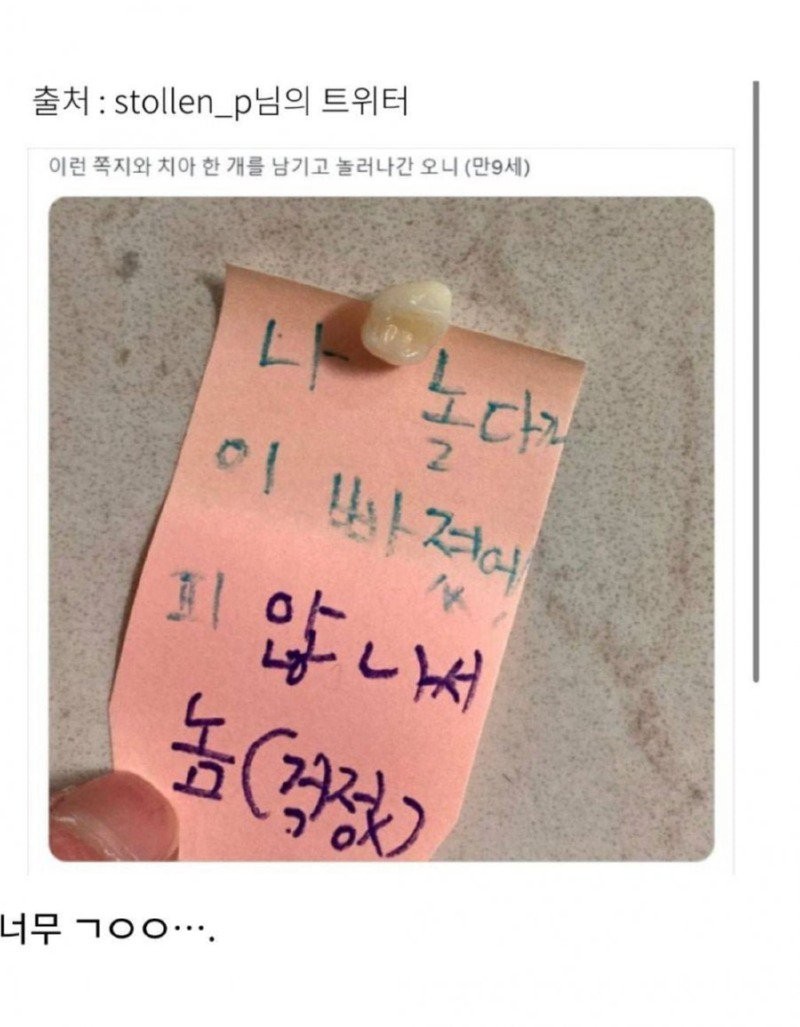 출처 : stollen_p님의 트위터
이런 쪽지와 치아 한 개를 남기고 놀러나간 오니 (만9세)
나 놀다가
이 빠졌어
피 않 나서
놈(걱정X)
너무 ㄱㅇㅇ….